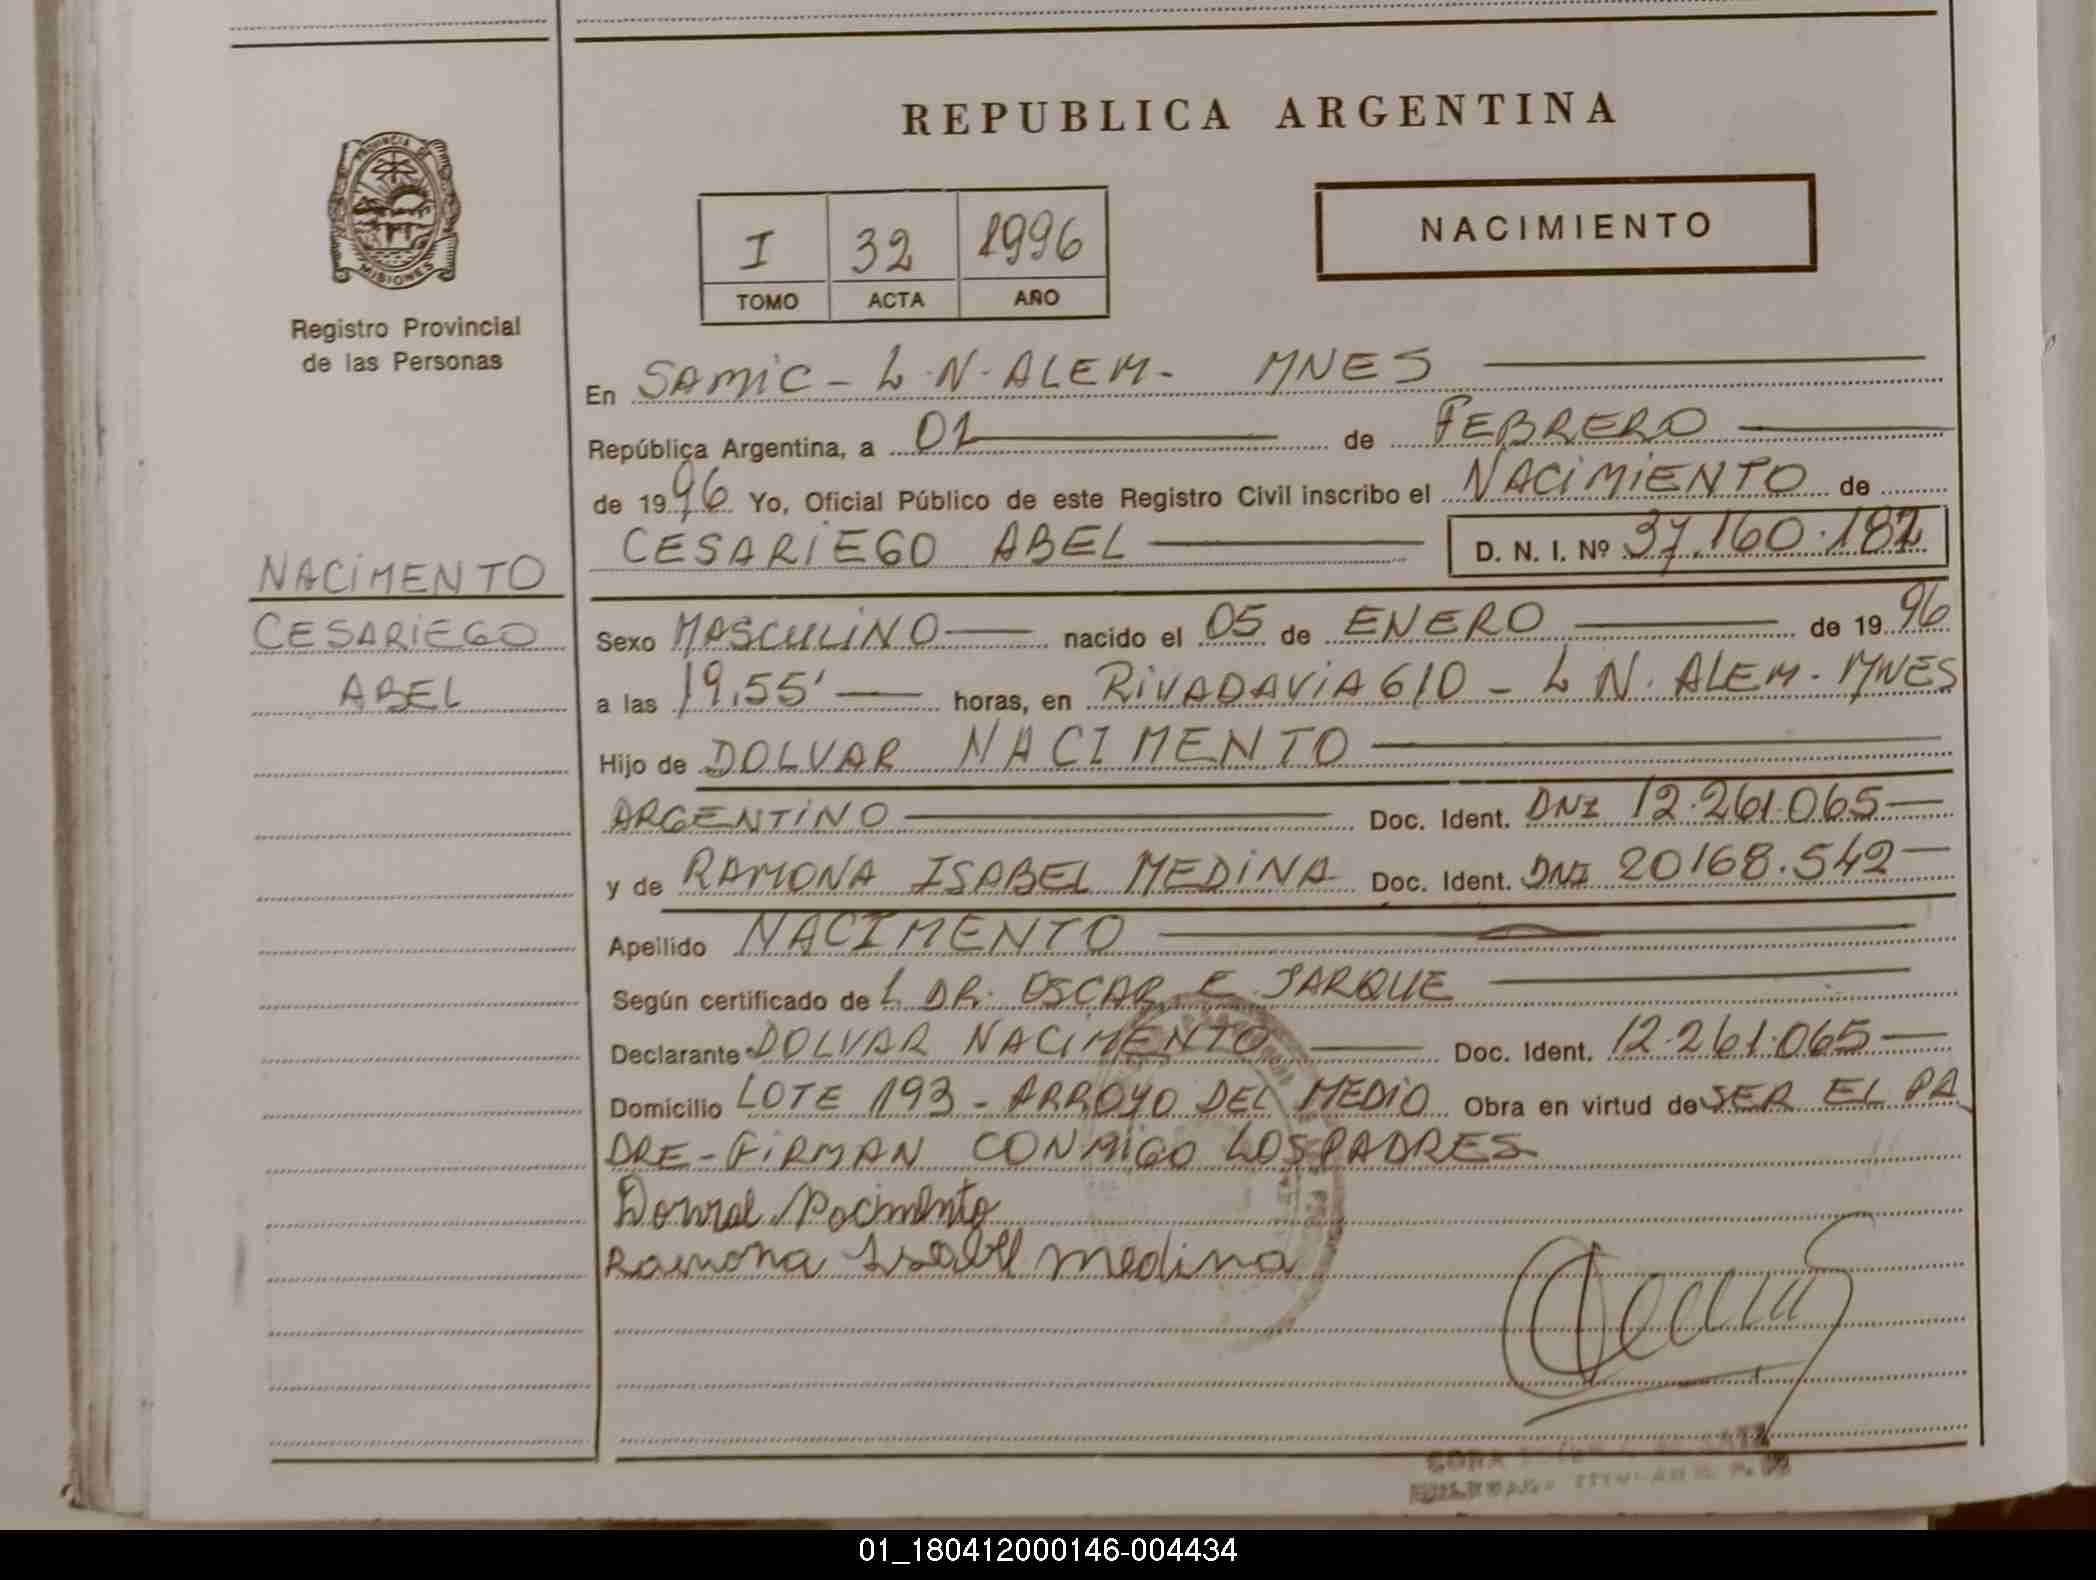 REPUBLICA ARGENTINA
PROVINCIA DE
MISIONES
Registro Provincial
de las Personas
I 32 1996
TOMO ACTA AÑO
NACIMIENTO
En SAMIC - L.N. ALEM - MNES
República Argentina, a 01 de FEBRERO
de 1996 Yo, Oficial Público de este Registro Civil inscribo el NACIMIENTO de
CESARIEGO ABEL D. N. I. Nº 37.160.182
NACIMENTO
CESARIEGO
ABEL
Sexo MASCULINO nacido el 05 de ENERO de 1996
a las 19,55' horas, en RIVADAVIA 610 - L N. ALEM - MNES
Hijo de DOLVAR NACIMENTO
ARGENTINO Doc. Ident. DNI 12.261.065
y de RAMONA ISABEL MEDINA Doc. Ident. DNI 20168.542
Apellido NACIMENTO
Según certificado de L DR. OSCAR E. JARQUE
Declarante DOLVAR NACIMENTO Doc. Ident. 12.261.065
Domicilio LOTE 193 - ARROYO DEL MEDIO Obra en virtud de SER EL PA
DRE - FIRMAN CONMIGO LOS PADRES
Nacimento
Ramona Isabel Medina
01_180412000146-004434